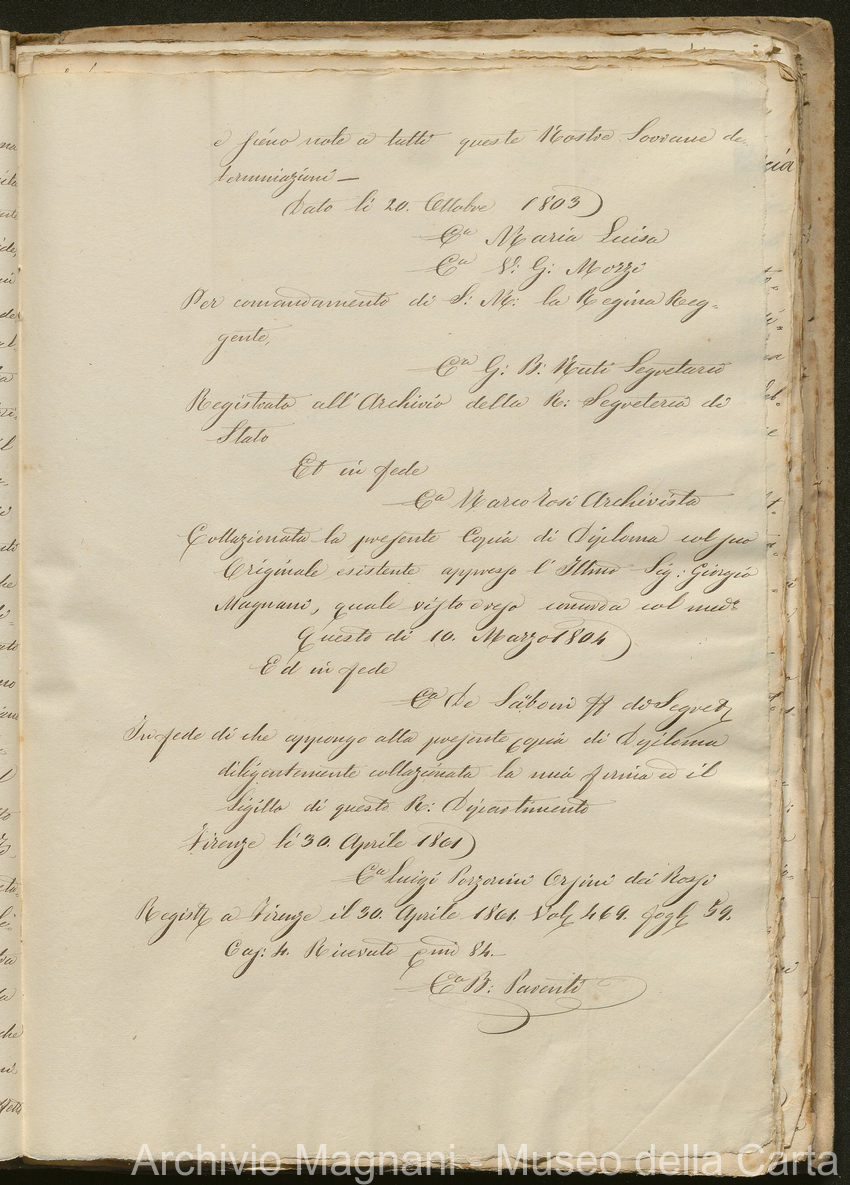 e sieno note a tutti queste Nostre Sovrane de-
terminazioni —
Dato li 20. Ottobre 1803)
Ca Maria Luisa
Ca V: G: Mozzi
Per comandamento di S: M: la Regina Reg-
gente,
Ca G: B: Nuti Segretario
Registrata all' Archivio della R: Segreteria di
Stato
Ed in fede
Ca Marco Tosi Archivista
Collazionata la presente Copia di Diploma col suo
Originale esistente appresso l' Illmo Sig: Giorgio
Magnani, quale visto e reso concorda col medo
Questo di 10. Marzo 1804)
Ed in fede
Ca De ff di Segret
In fede di che appongo alla presente copia di Diploma
diligentemente collazionata la mia firma ed il
Sigillo di questo R: Dipartimento
Firenze li 30. Aprile 1861)
Ca Luigi Orsini dei Rossi
Regist a Firenze il 30. Aprile 1861. Vol 469. fogl 59.
Cas: 4. Ricevuto 84.-
Ca B:
Archivio Magnani - Museo della Carta